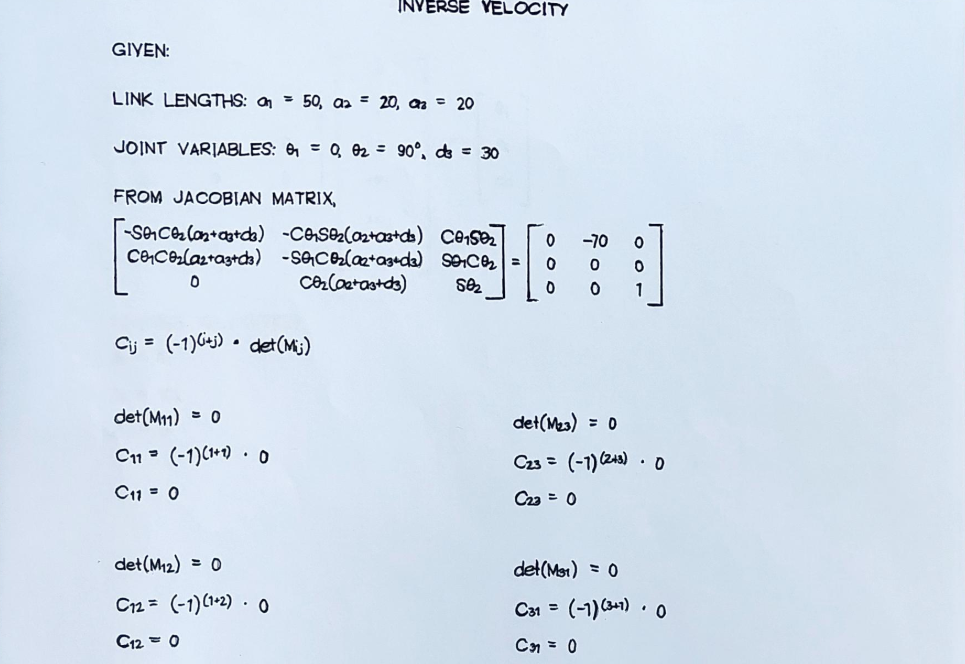 INVERSE VELOCITY
GIVEN:
LINK LENGTHS: a1 = 50, a2 = 20, a3 = 20
JOINT VARIABLES: θ1 = 0, θ2 = 90°, d3 = 30
FROM JACOBIAN MATRIX,
[-Sθ1Cθ2(a2+a3+d3) -Cθ1Sθ2(a2+a3+d3) Cθ1Sθ2] [0 -70 0]
[Cθ1Cθ2(a2+a3+d3) -Sθ1Cθ2(a2+a3+d3) Sθ1Cθ2] = [0 0 0]
[0 Cθ2(a2+a3+d3) Sθ2] [0 0 1]
Cij = (-1)^(i+j) • det(Mij)
det(M11) = 0
C11 = (-1)^(1+1) · 0
C11 = 0
det(M12) = 0
C12 = (-1)^(1+2) · 0
C12 = 0
det(M23) = 0
C23 = (-1)^(2+3) · 0
C23 = 0
det(M31) = 0
C31 = (-1)^(3+1) · 0
C31 = 0